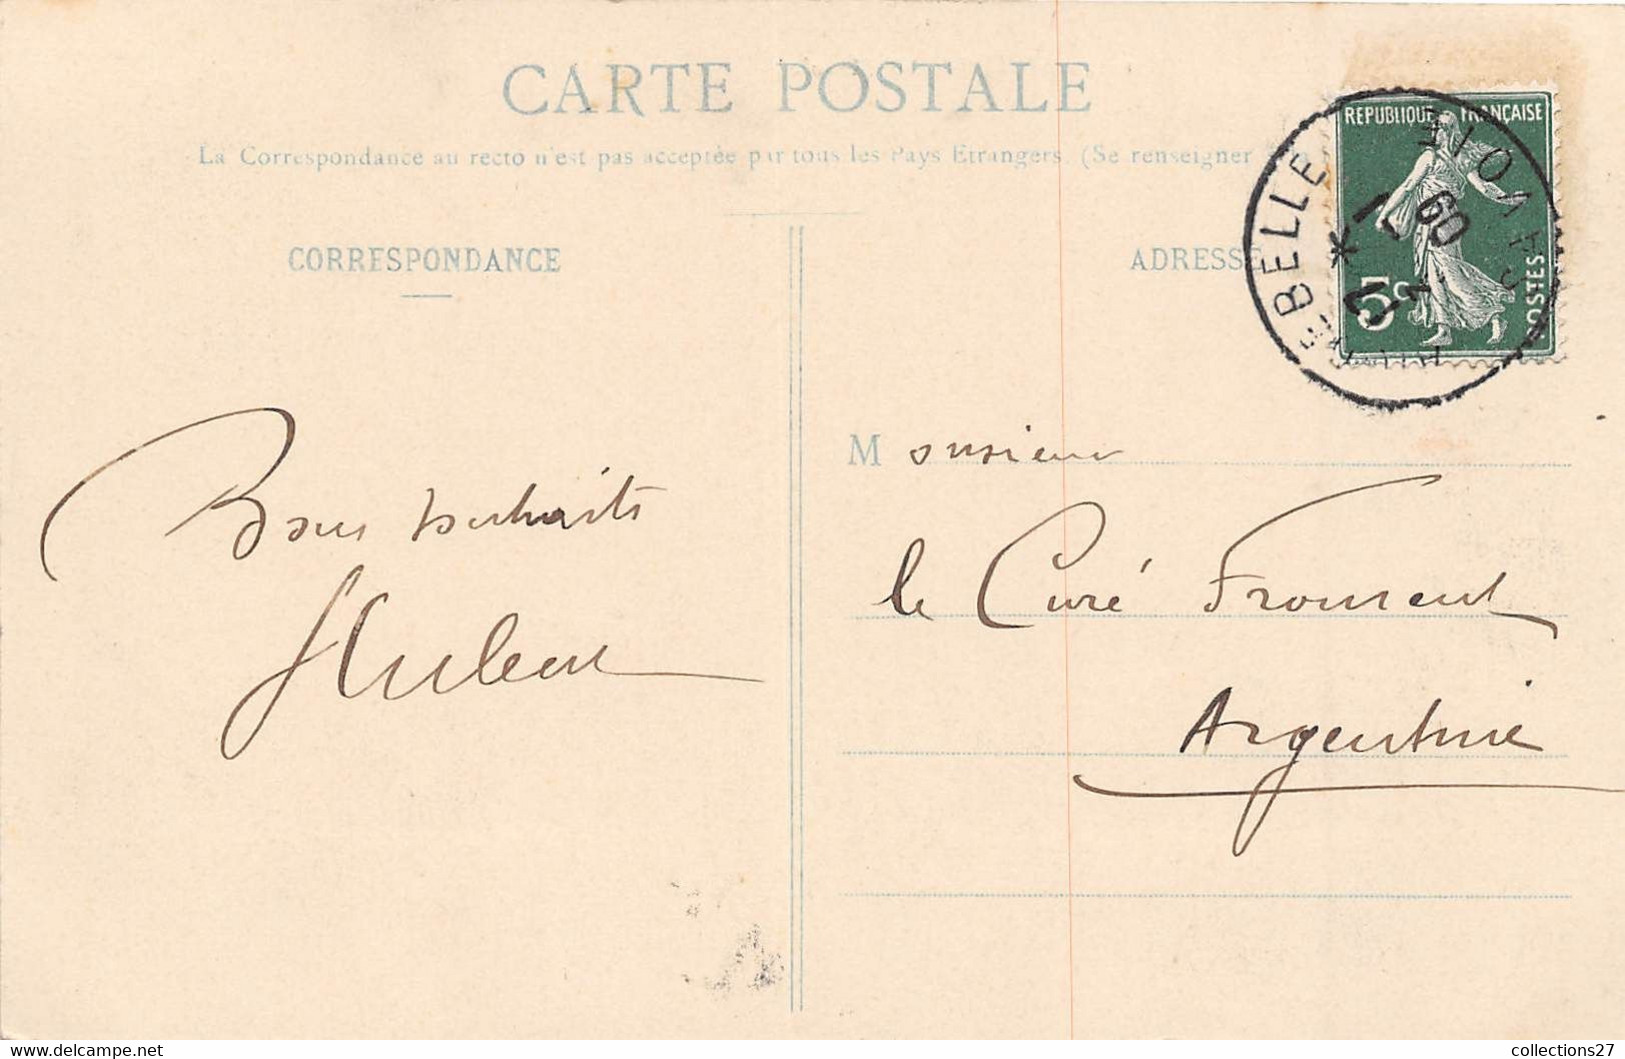 CARTE POSTALE
La Correspondance au recto n'est pas acceptée par tous les Pays Etrangers. (Se renseigner
CORRESPONDANCE
ADRESSE
RÉPUBLIQUE FRANÇAISE
5c
POSTES
BELLE
SAVOIE
09
Bons souhaits
Monsieur
le Curé Froment
Argentine
collections27